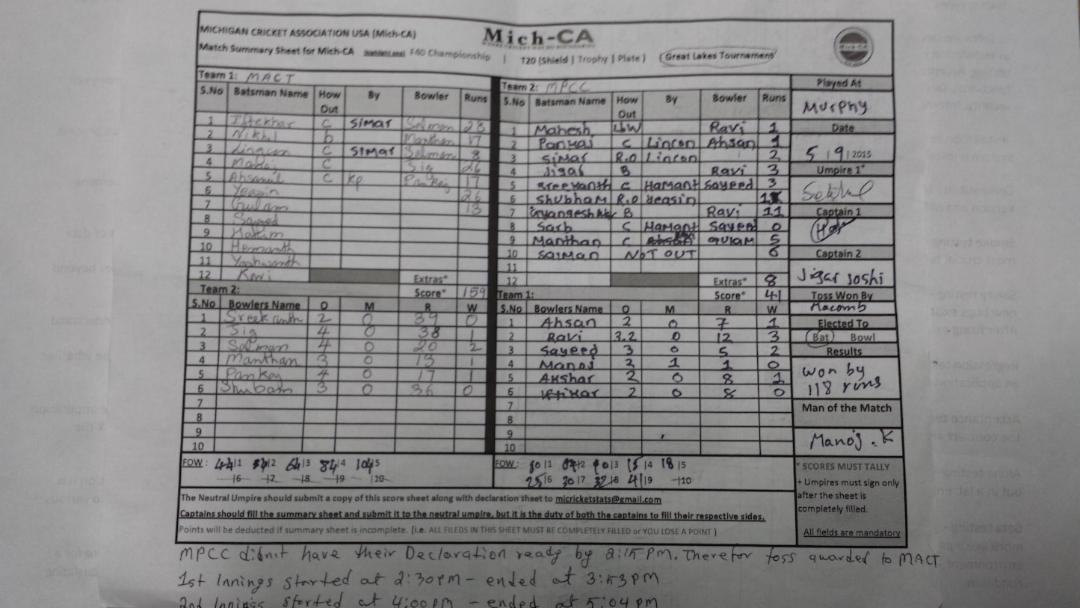 MICHIGAN CRICKET ASSOCIATION USA (Mich-CA)
Mich-CA
Match Summary Sheet for Mich-CA F40 Championship | T20 (Shield | Trophy | Plate) (Great Lakes Tournament)
Team 1: MACT
S.No Batsman Name How Out By Bowler Runs
1 Iftekhar C Simar Salman 28
2 Nikhil b Manthan 17
3 C Simar Salman 8
4 Manoj C Sig 26
5 Ahsanul C KP Pankaj
6 Yeasin 26
7 Gulam 13
8 Sayeed
9 Hakim
10 Hemanth
11 Yashwanth
12 Ravi Extras*
Score* 159
Team 2: MPCC
S.No Batsman Name How Out By Bowler Runs
1 Mahesh LBW Ravi 1
2 Pankaj C Lincon Ahsan 1
3 Simar R.O Lincon 2
4 Jigar B Ravi 3
5 Sreekanth C Hamant Sayeed 3
6 Shubham R.O Yeasin
7 B Ravi 11
8 Sarb C Hamant Sayeed 0
9 Manthan C Gulam 5
10 Salman NOT OUT 6
11
12 Extras* 8
Score* 41
Team 2:
S.No Bowlers Name O M R W
1 Sreekanth 2 0 39 0
2 Jig 4 0 38
3 Salman 4 0 20 2
4 Manthan 3 0 13 1
5 Pankaj 4 0 17 1
6 Shubam 3 0 36 0
7
8
9
10
Team 1:
S.No Bowlers Name O M R W
1 Ahsan 2 0 7 1
2 Ravi 3.2 0 12 3
3 Sayeed 3 0 5 2
4 Manoj 2 1 1 0
5 Akshar 2 0 8 1
6 Iftikar 2 0 8 0
7
8
9
10
FOW: 44|1 |2 64|3 84|4 104|5
|6 |7 |8 |9 |10
FOW: |1 |2 |3 15|4 18|5
25|6 30|7 |8 41|9 |10
Played At
Murphy
Date
5 | 9 | 2015
Umpire 1*
Captain 1
Captain 2
Jigar Joshi
Toss Won By
Macomb
Elected To
Bat Bowl
Results
won by
118 runs
Man of the Match
Manoj .K
* SCORES MUST TALLY
+ Umpires must sign only
after the sheet is
completely filled.
All fields are mandatory
The Neutral Umpire should submit a copy of this score sheet along with declaration sheet to micricketstats@gmail.com
Captains should fill the summary sheet and submit it to the neutral umpire, but it is the duty of both the captains to fill their respective sides.
Points will be deducted if summary sheet is incomplete. (i.e. ALL FILEDS IN THIS SHEET MUST BE COMPLETELY FILLED or YOU LOSE A POINT)
MPCC didnit have their Declaration ready by 2:15 PM. Therefor toss awarded to MACT
1st Innings started at 2:30PM - ended at 3:53PM
2nd Innings started at 4:00PM - ended at 5:04 PM